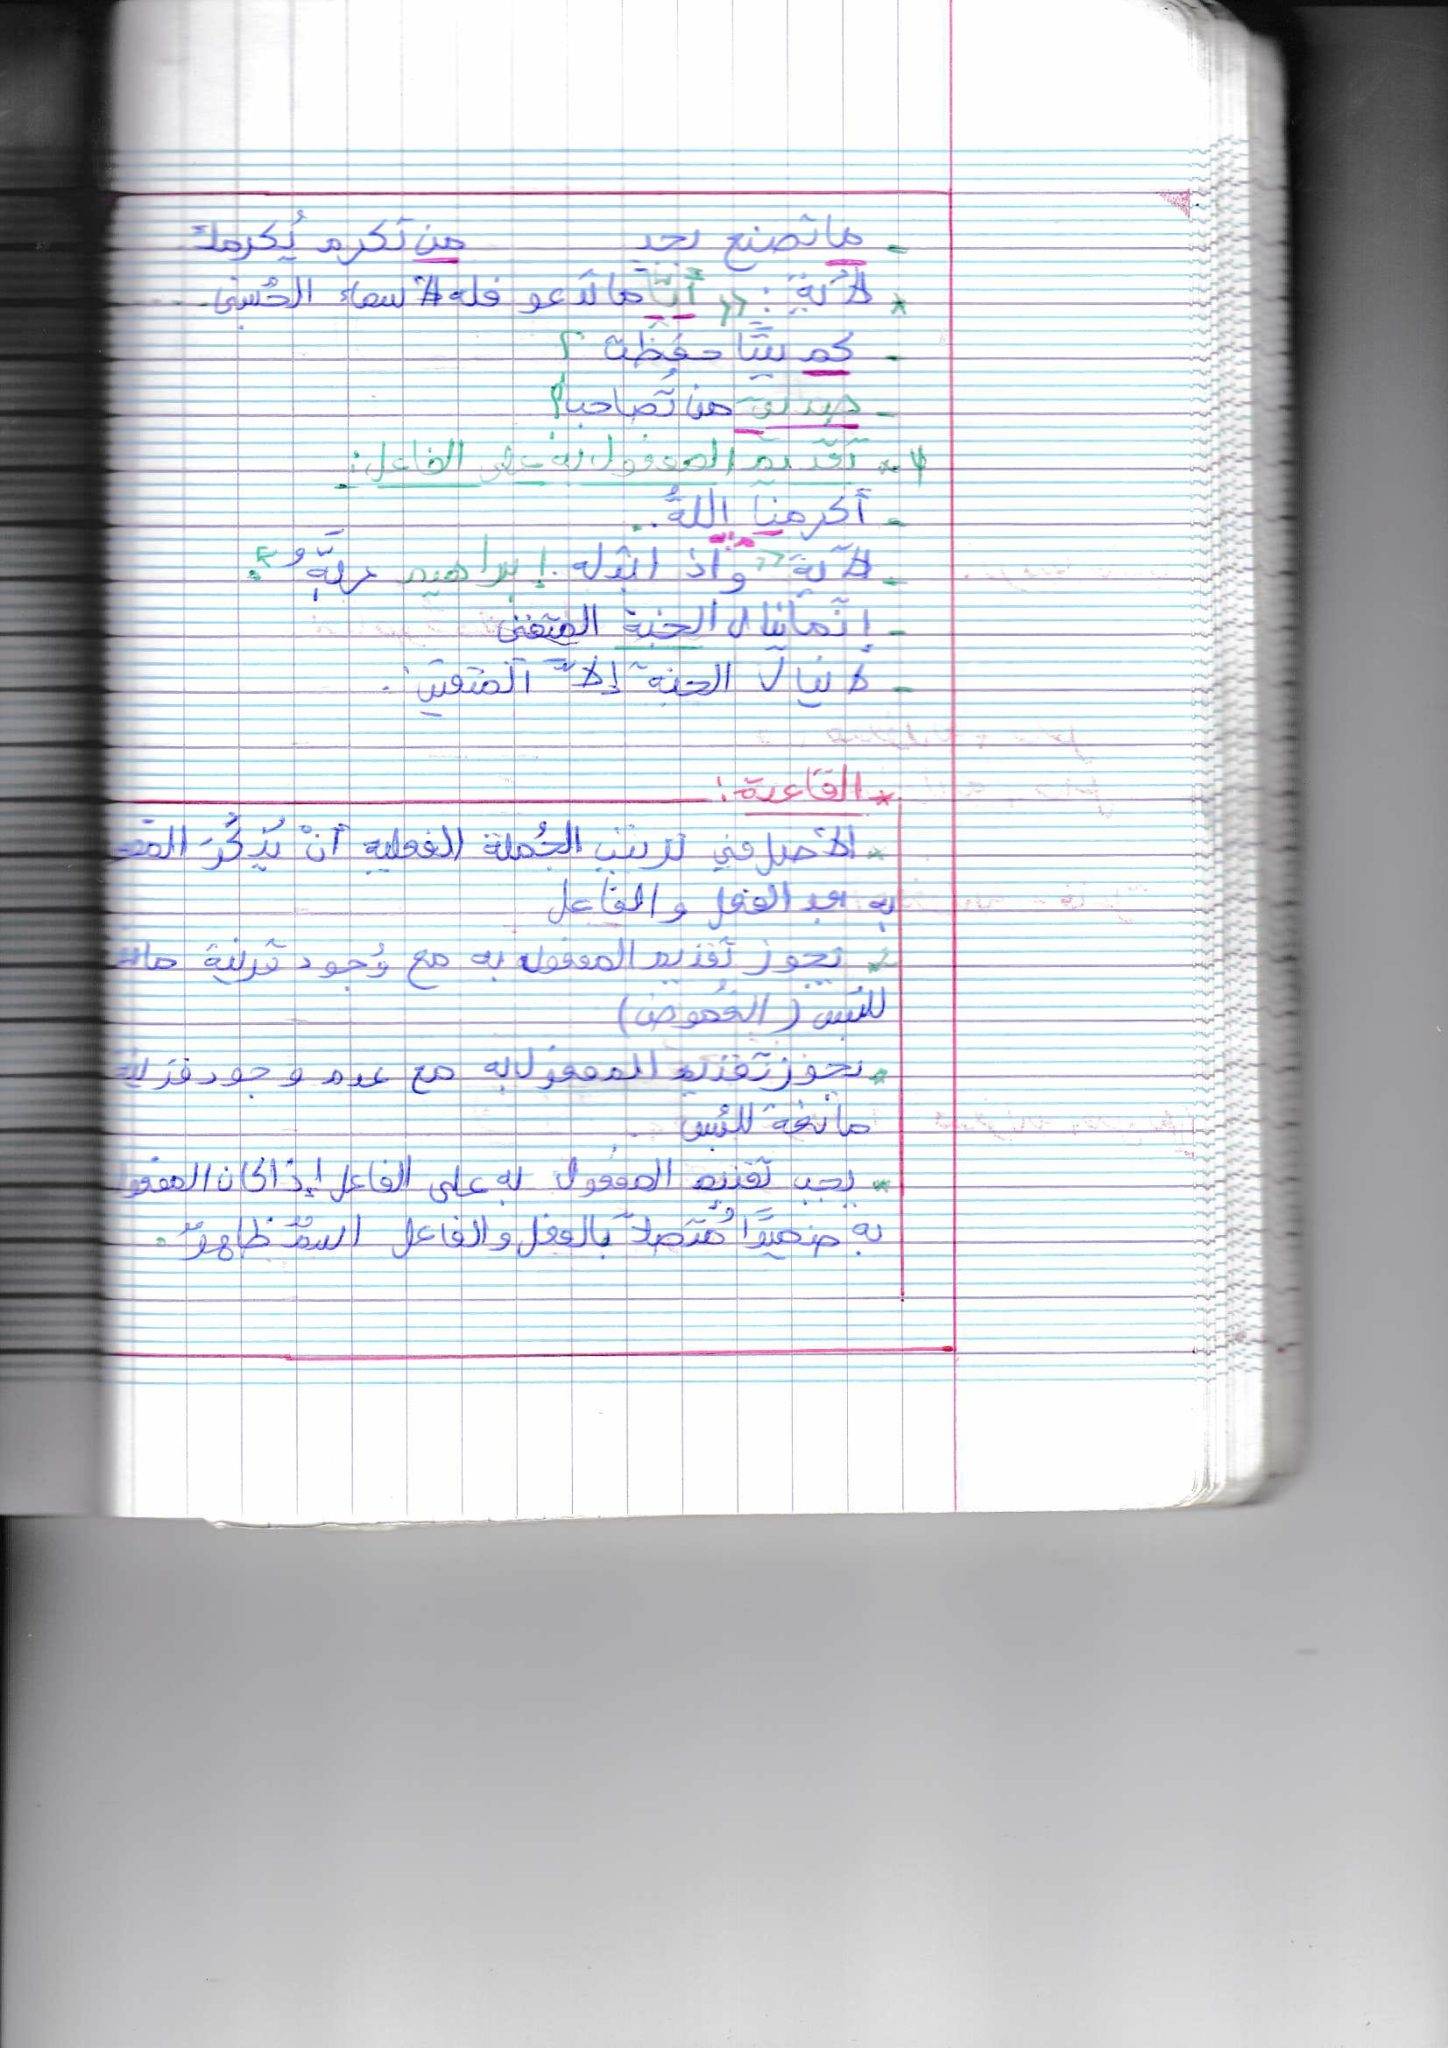 - ما تصنع تجد من تكرم يُكرمك
* الآية : « أيًّا ما تدعو فله الأسماء الحُسنى.
- كم بيتًا حفظة ؟
- من تُصاحب؟
4- تقديم المفعول به على الفاعل :
- أكرمنا اللهُ .
- الآية « واذ ابتله إبراهيم ربَّهُ ».
- إنّما ينال الجنة المتقي
- لا ينال الجنة إلاّ المتقين .
* القاعدة :
* الأصل في ترتيب الجُملة الفعلية أنْ يُذكُرَ المفع
به بعد الفعل و الفاعل
* يجوز تقديم المفعول به مع وُجود قرينة مان
للبس ( الغُموض )
* يجوز تقديم المفعول به مع عدم وجود قرينة
مانعة للبس
* يجب تقديم المفعول به على الفاعل إذا كان المفعول
به ضميرًا مُتصلاً بالفعل والفاعل اسمٌ ظاهرٌ .